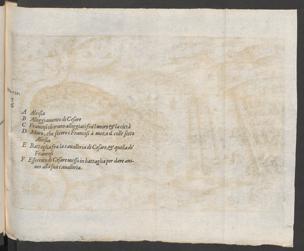 A Alesia
B Alloggiamento di Cesare
C Francesi ch'erano alloggiati fra'l muro & la città
D Muro, che fecero i Francesi à mezo il colle sotto
Alesia
E Battaglia fra la cavalleria di Cesare, & quella de'
Francesi
F Essercito di Cesare messo in battaglia per dare ani-
mo alla sua cavalleria.